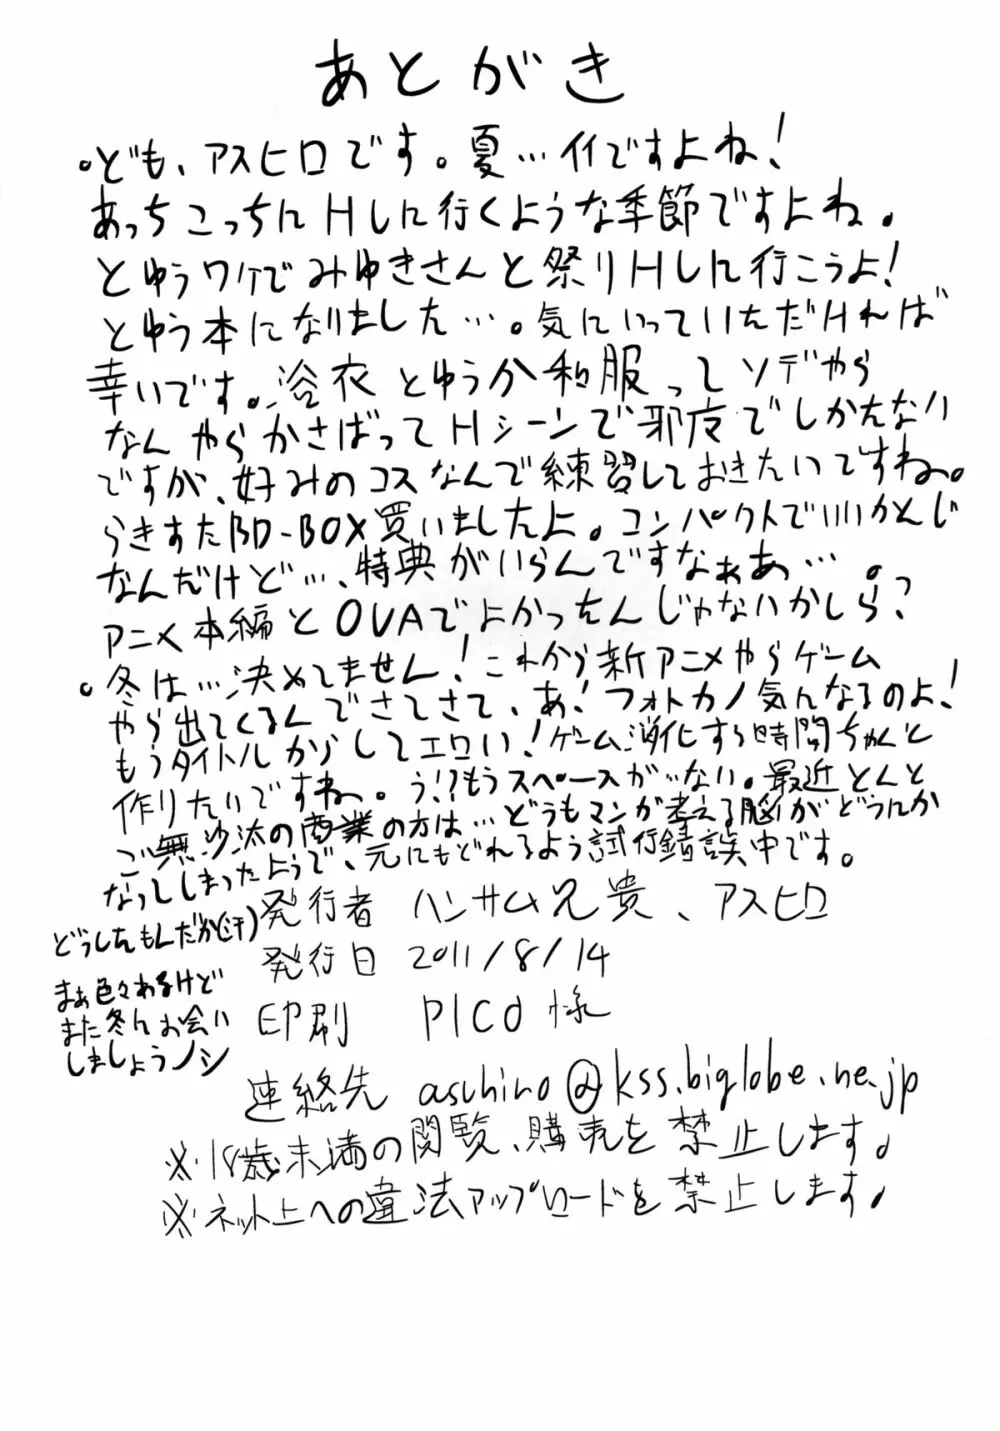 あとがき
・ども、アスヒロです。夏…イイですよね!
あっちこっちにHしに行くような季節ですよね。
とゆうワケでみゆきさんと祭りHしに行こうよ!
とゆう本になりました…。気にいっていただければ
幸いです。浴衣とゆうか和服ってソデやら
なんやらかさばってHシーンで邪魔でしかたない
ですが、好みのコスなんで練習しておきたいですね。
らきすたBD-BOX買いましたよ。コンパクトでいいかんじ
なんだけど…、特典がいらんですなぁあ…。
アニメ本編とOVAでよかったんじゃないかしら?
・冬は…決めてません!これから新アニメやらゲーム
やら出てくるんでさてさて、あ!フォトカノ気になるのよ!
もうタイトルからしてエロい!ゲーム消化する時間ちゃんと
作りたいですね。う!?もうスペースがない。最近とんと
ご無沙汰の商業の方は…どうもマンガ考える脳がどうにか
なってしまったようで、元にもどれるよう試行錯誤中です。
どうしたもんだか(汗)
まぁ色々あるけど
また冬にお会い
しましょうノシ
発行者 ハンサム兄貴、アスヒロ
発行日 2011/8/14
印刷 PICO様
連絡先 aschiro@kss.biglobe.ne.jp
※18歳未満の閲覧、購売を禁止します。
※ネット上への違法アップロードを禁止します。